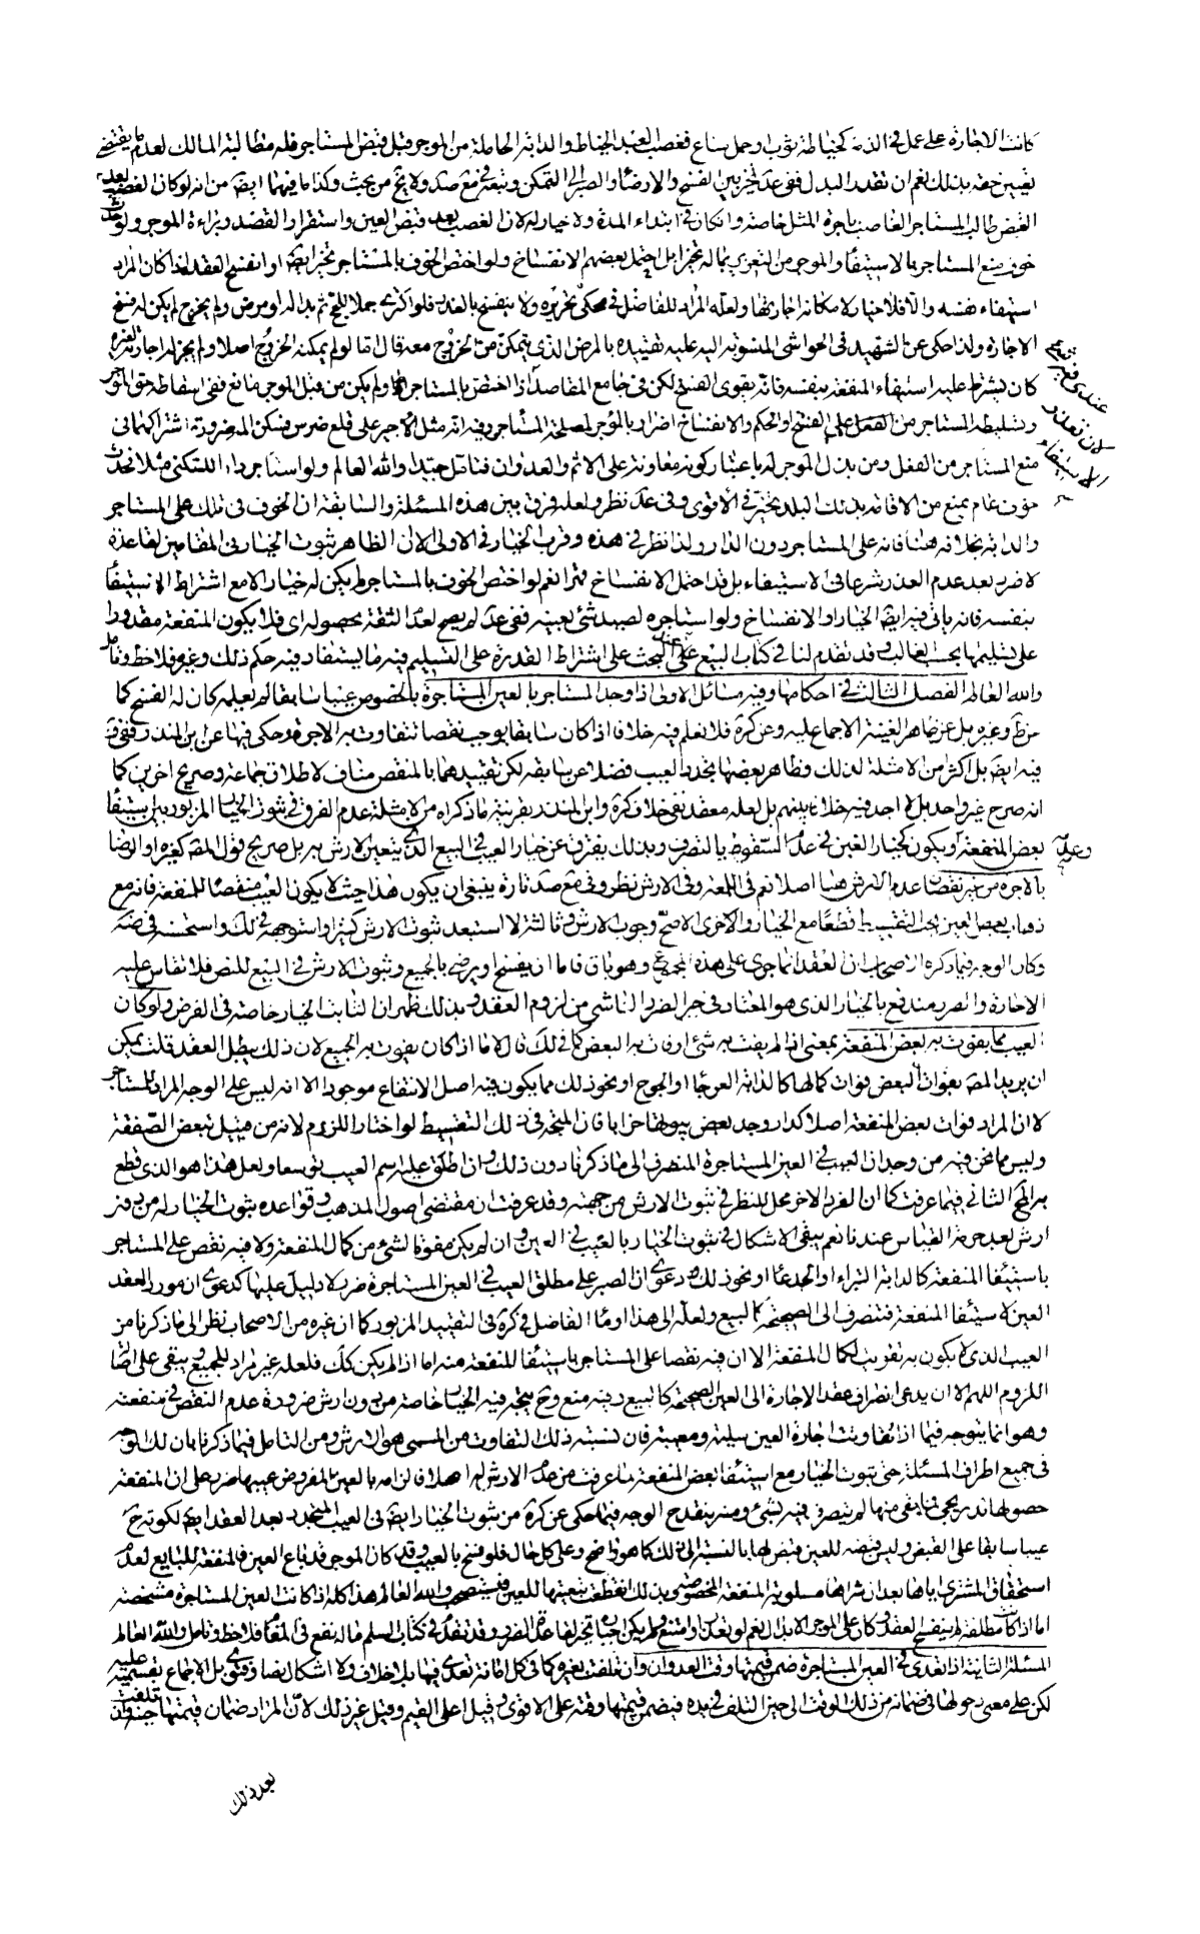 كانت الاجارة على عمل في الذمة كخياطة ثوب او حمل متاع فغصب العبد الخياط والدابة الحاملة من الموجر قبل قبض المستاجر فله مطالبة المالك لعدم ما يقتضى
تعيين حقه بذلك نعم ان تعذر البدل فقد تخير بين الفسخ والارضاء والصبر الى التمكن
القبض طالب المستاجر الغاصب باجرة المثل خاصة وان كان في ابتداء المدة ولا خيار له لان الغصب بعد قبض العين واستقرار العقد وبراءة الموجر ولو حدث
خوف منع المستاجر بالاستيفاء والموجر من التعزير بماله تخيرا بل احتمل بعضهم الانفساخ ولو اختص الخوف بالمستاجر تخير ايضا او انفسخ العقد اذا كان المراد
استيفاءه بنفسه والا فلا خيار لامكان اجارتها ولعله المراد للفاضل في محكى تحريره ولا ينفسخ بالعذر فلو اكترى جملا للحج ثم بدا له او مرض ولم يخرج لم يكن له فسخ
الاجارة ولذا حكى عن الشهيد في الحواشى المنسوبة اليه عليه تقييده بالمرض الذى يتمكن من الخروج معه قال اما لو لم يمكنه الخروج اصلا ولم يجز له اجارته لغيره
كان يشترط عليه استيفاء المنفعة بنفسه فانه يقوى الفسخ لكن في جامع المقاصد اذا اختص بالمستاجر ولم يكن من قبل الموجر مانع ففى اسقاط حق الموجر
عندى فيه تخيير
لان تعذر
الاستيفاء
وتسليطه المستاجر من الفعل على الفسخ او الحكم والانفساخ اضرار بالموجر لمصلحة المستاجر وفيه انه مثل الاجير على قلع ضرس فسكن المه ضرورة اشتراكهما في
منع المستاجر من الفعل ومن بذل الموجر له باعتبار كونه معاونة على الاثم والعدوان فتامل جيدا والله العالم ولو استاجر دارا للسكنى مثلا فحدث
خوف عام يمنع من الاقامة بذلك البلد تخير في الاقوى وفي عد نظر ولعله فرق بين هذه المسئلة والسابقة ان الخوف في تلك على المستاجر
والدابة بخلافه هنا فانه على المستاجر دون الدار ولذا نظر في هذه وقرب الخيار في الاولى الا ان الظاهر ثبوت الخيار في المقامين لقاعدة
لا ضرر بعد عدم العذر شرعا في الاستيفاء بل قد احتمل الانفساخ قهرا نعم لو اختص الخوف بالمستاجر لم يكن له خيار الا مع اشتراط الاستيفاء
بنفسه فانه ياتى فيه ايضا الخيار او الانفساخ ولو استاجره لصيد شئ بعينه ففى عد لم يصح لعدم الثقة بحصوله اى فلا يكون المنفعة مقدورا
على تسليمها بحسب الغالب وقد تقدم لنا في كتاب البيع عند البحث على اشتراط القدرة على التسليم فيه ما يستفاد منه حكم ذلك وغيره فلاحظ وتامل
والله العالم الفصل الثالث في احكامها وفيه مسائل الاولى اذا وجد المستاجر بالعين المستاجرة بالخصوص عيبا سابقا لم يعلم به كان له الفسخ كما
صرح وغيره بل عن ظاهر الغنية الاجماع عليه وعن كرة فلا نعلم فيه خلافا اذا كان سابقا يوجب نقصا تتفاوت به الاجرة وحكى فيها عن ابن المنذر
فيه ايضا بل اكثر من الامثلة لذلك وظاهر بعضها تجدد العيب فضلا عن سابقه لكن تقييدهما بالمنقص مناف لاطلاق جماعة وصريح اخرين كما
انه صرح غير واحد بل لا اجد فيه خلافا بينهم بل لعله معقد نفى خلاف كرة وابن المنذر بقرينة ما ذكراه من الامثلة عدم الفرق في ثبوت الخيار المزبور بين استيفاء
بعض المنفعة وعدمه ويكون كخيار الغبن في عدم السقوط بالتصرف وبذلك يفترق عن خيار العيب في البيع الذى يتعين الارش به بل صريح قول المص كغيره او الرضا
بالاجرة من غير نقصان عدم الارش هنا اصلا نعم في اللمعة وفي الارش نظر وفي مع صد تارة ينبغى ان يكون هذا حيث لا يكون العيب منقصا للمنفعة فانه مع
ذهاب بعض العين يجب التقسيط قطعا مع الخيار والاخرى الاصح وجوب الارش وثالثة لا استبعد ثبوت الارش كثيرا واستوجه في لك واستحسنه في ضة
وكان الوجه فيما ذكره الاصحاب ان العقد انما جرى على هذا المجموع وهو باق فاما ان يفسخ او يرضى بالجميع وثبوت الارش في البيع للنص فلا تقاس عليه
الاجارة والضرر مندفع بالخيار الذى هو المعتاد في جبر الضرر الناشى من لزوم العقد وبذلك ظهر ان الثابت الخيار خاصة في الفرض ولو كان
العيب مما يفوت به بعض المنفعة بمعنى انه لم يفت به شئ او فات به البعض كما في لك قال اما اذا كان يفوت به الجميع لان ذلك يبطل العقد قلت يمكن
ان يريد المص بفوات البعض فوات كمالها كالدابة العرجا او الجموح او نحو ذلك مما يكون فيه اصل الانتفاع موجودا الا انه ليس على الوجه المراد للمستاجر
لا ان المراد فوات بعض المنفعة اصلا كدار وجد بعض بيوتها خرابا فان المتجه في ذلك التقسيط لو اختار اللزوم لانه من قبيل تبعض الصفقة
وليس مما نحن فيه من وجدان العيب في العين المستاجرة المنصرف الى ما ذكرنا دون ذلك وان اطلق عليه اسم العيب توسعا ولعل هذا هو الذى قطع
به المحقق الثاني فيما عرفت كما ان الفرد الاخر محل للنظر في ثبوت الارش من جهته وقد عرفت ان مقتضى اصول المذهب وقواعده ثبوت الخيار له من دون
ارش بعد حرمة القياس عندنا نعم يبقى الاشكال في ثبوت الخيار بالعيب في العين وان لم يكن مفوتا لشئ من كمال المنفعة ولا فيه نقص على المستاجر
باستيفاء المنفعة كالدابة البتراء او الجدعا او نحو ذلك ودعوى ان الصبر على مطلق العيب في العين المستاجرة ضرر لا دليل عليها كدعوى ان مورد العقد
العين لاستيفاء المنفعة فتنصرف الى الصحيحة كالبيع ولعله الى هذا اوما الفاضل في كرة في التقييد المزبور كما ان غيره من الاصحاب نظر الى ما ذكرنا من
العيب الذى لا يكون به تفويت لكمال المنفعة الا ان فيه نقصا على المستاجر باستيفاء المنفعة منه اما اذا لم يكن كك فلعله غير مراد للجميع ويبقى على اصالة
اللزوم اللهم الا ان يدعى انصراف عقد الاجارة الى العين الصحيحة كالبيع وفيه منع وح يتجه فيه الخيار خاصة من دون ارش ضرورة عدم النقص في منفعته
وهو انما يتوجه فيما اذا تفاوتت اجارة العين سليمة ومعيبة فان نسبة ذلك التفاوت من المسمى هو الارش ومن التامل فيما ذكرنا بان لك الوجه
في جميع اطراف المسئلة حتى ثبوت الخيار مع استيفاء بعض المنفعة لما عرفت من عدم الارش له اصلا فالزامه بالعين المفروض عيبها ضرر على ان المنفعة
حصولها تدريجى فما بقى منها لم يتصرف فيه بشئ ومنه ينقدح الوجه فيما حكى عن كرة من ثبوت الخيار ايضا في العيب المتجدد بعد العقد ايضا لكونه ح
عيبا سابقا على القبض وليس قبضه للعين قبض لها بالنسبة الى ذلك كما هو واضح وعلى كل حال فلو فسخ بالعيب وقد كان الموجر قد باع العين فالمنفعة للبايع لعدم
استحقاق المشترى اياها بعد ان شراها مسلوبة المنفعة المخصوصة وبذلك انقطعت تبعيتها للعين فيستصحب والله العالم هذا كله اذا كانت العين المستاجرة مشخصة
اما اذا كانت مطلقة لم ينفسخ العقد وكان على الموجر الابدال نعم لو تعذر او امتنع ولم يمكن اجباره تخير لقاعدة الضرر وقد تقدم في كتاب السلم ما له نفع في المقام فلاحظ وتامل والله العالم
المسئلة الثانية اذا تعدى في العين المستاجرة ضمن قيمتها وقت العدوان وان تلفت بغيره كما في كل امانة تعدى فيها بلا خلاف ولا اشكال نصا وفتوى بل الاجماع بقسميه عليه
لكن على معنى دخولها في ضمانه من ذلك الوقت الى حين التلف في يده فيضمن قيمتها وقته على الاقوى وقيل اعلى القيم وقيل غير ذلك لا ان المراد ضمان قيمتها حينه وان تلفت
بعد ذلك